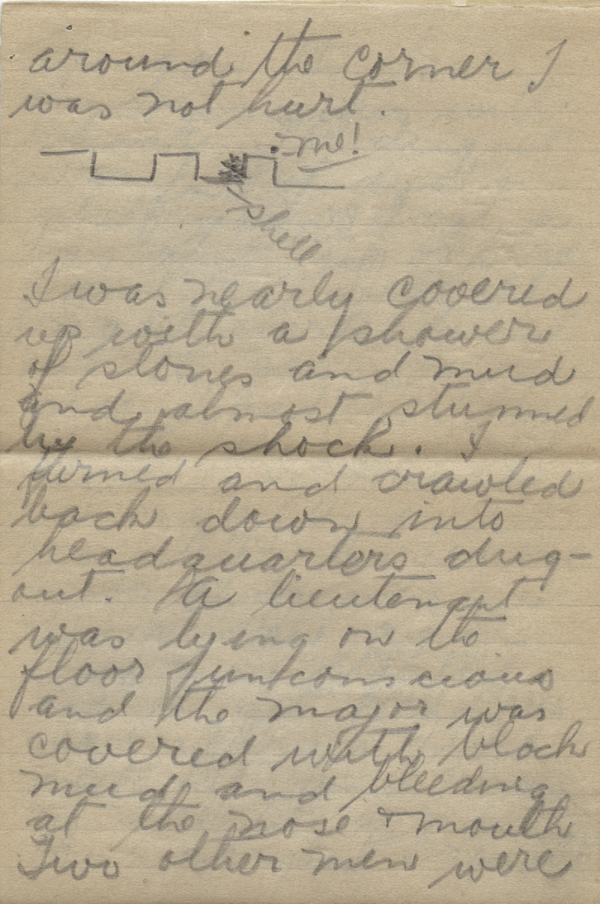 around the corner I
was not hurt.
me!
shell
I was nearly covered
up with a shower
of stones and mud
and almost stunned
by the shock. I
turned and crawled
back down into
headquarters dug-
out. A lieutenant
was lying on the
floor unconscious
and the major was
covered with black
mud and bleeding
at the nose & mouth
Two other men were